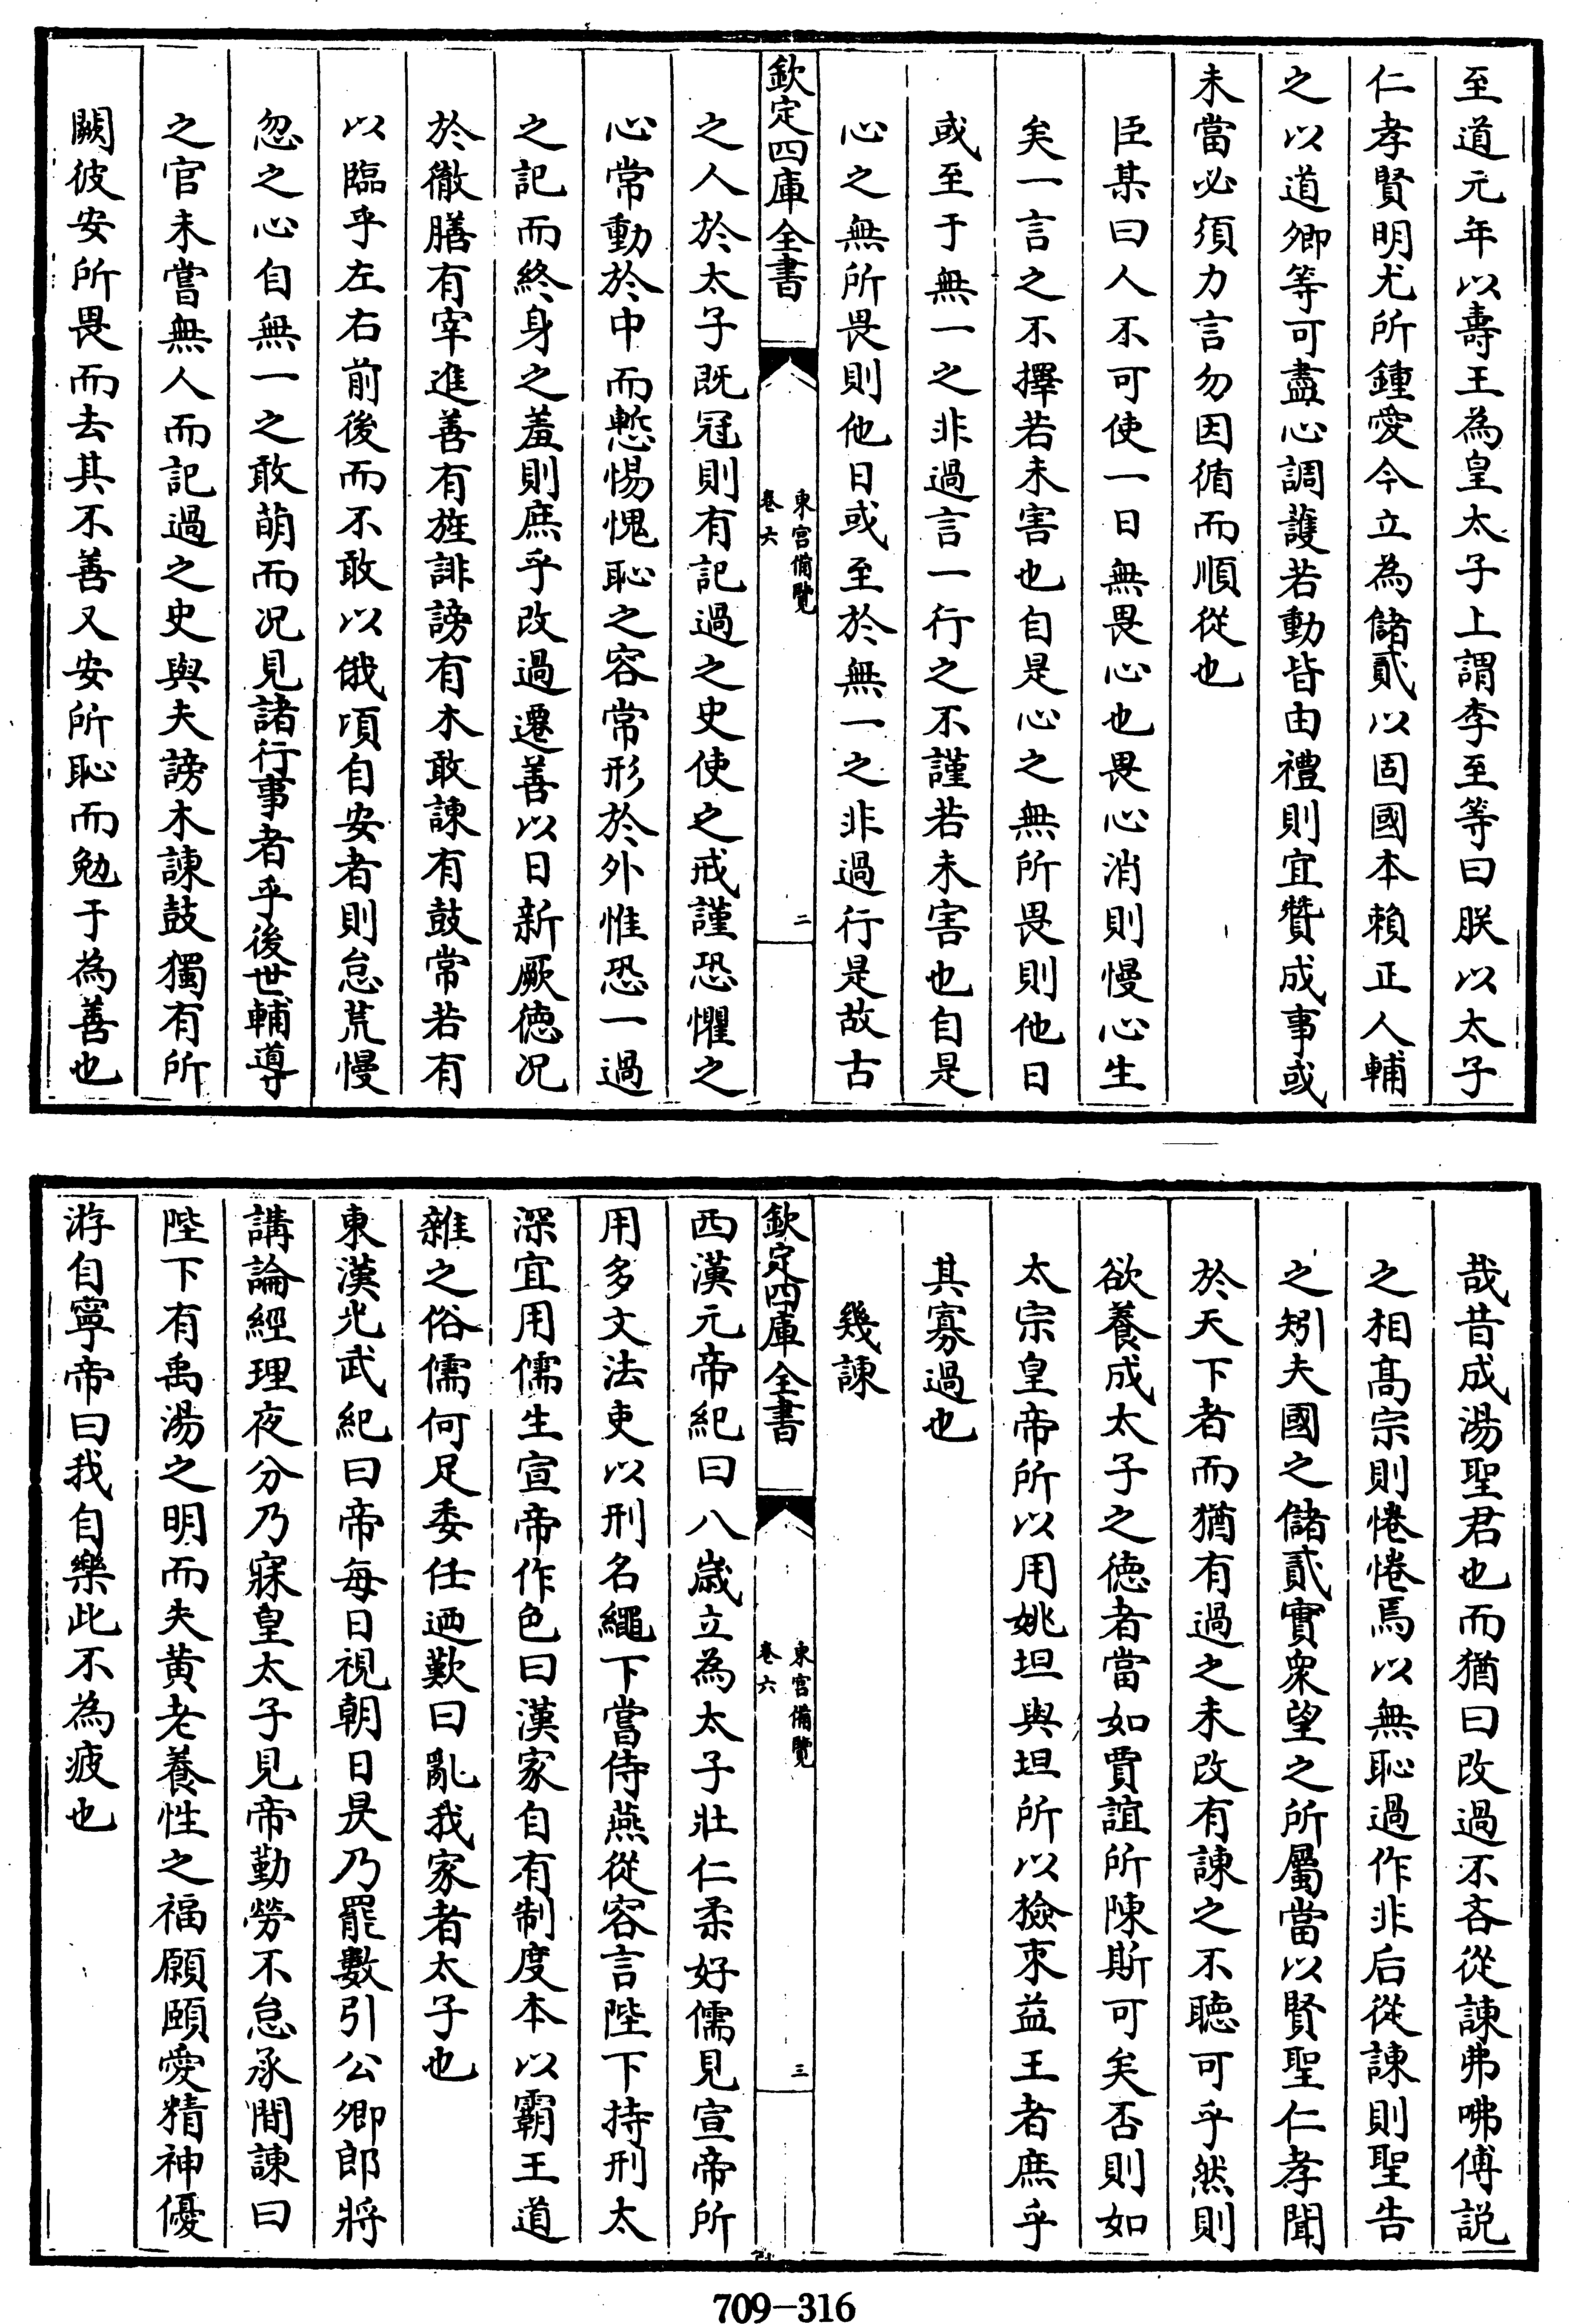 至道元年以壽王為皇太子上謂李至等曰朕以太子
仁孝賢明尤所鍾愛今立為儲貳以固國本賴正人輔
之以道卿等可盡心調護若動皆由禮則宜贊成事或
未當必須力言勿因循而順從也
臣某曰人不可使一日無畏心也畏心消則慢心生
矣一言之不擇若未害也自是心之無所畏則他日
或至于無一之非過言一行之不謹若未害也自是
心之無所畏則他日或至於無一之非過行是故古
欽定四庫全書
東宮備覽
卷六
二
之人於太子既冠則有記過之史使之戒謹恐懼之
心常動於中而慙惕愧恥之容常形於外惟恐一過
之記而終身之羞則庶乎改過遷善以日新厥德况
於徹膳有宰進善有旌誹謗有木敢諫有鼓常若有
以臨乎左右前後而不敢以俄頃自安者則怠荒慢
忽之心自無一之敢萌而况見諸行事者乎後世輔導
之官未嘗無人而記過之史與夫謗木諫鼓獨有所
闕彼安所畏而去其不善又安所恥而勉于為善也
哉昔成湯聖君也而猶曰改過不吝從諫弗咈傅説
之相高宗則惓惓焉以無恥過作非后從諫則聖告
之矧夫國之儲貳實衆望之所屬當以賢聖仁孝聞
於天下者而猶有過之未改有諫之不聽可乎然則
欲養成太子之德者當如賈誼所陳斯可矣否則如
太宗皇帝所以用姚坦與坦所以撿束益王者庶乎
其寡過也
幾諫
欽定四庫全書
東宮備覽
卷六
三
西漢元帝紀曰八歲立為太子壯仁柔好儒見宣帝所
用多文法吏以刑名繩下嘗侍燕從容言陛下持刑太
深宜用儒生宣帝作色曰漢家自有制度本以霸王道
雜之俗儒何足委任迺歎曰亂我家者太子也
東漢光武紀曰帝每日視朝日昃乃罷數引公卿郎將
講論經理夜分乃寐皇太子見帝勤勞不怠承間諫曰
陛下有禹湯之明而失黃老養性之福願頤愛精神優
游自寧帝曰我自樂此不為疲也
709-316